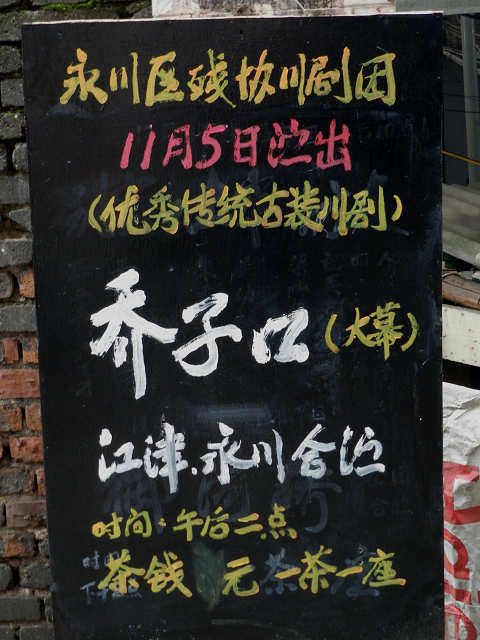 永川区残协川剧团
11月5日泣出
(优秀传统古装川剧)
乔子口(大幕)
江津、永川合泣
时间:午后二点
茶钱 元一茶一座